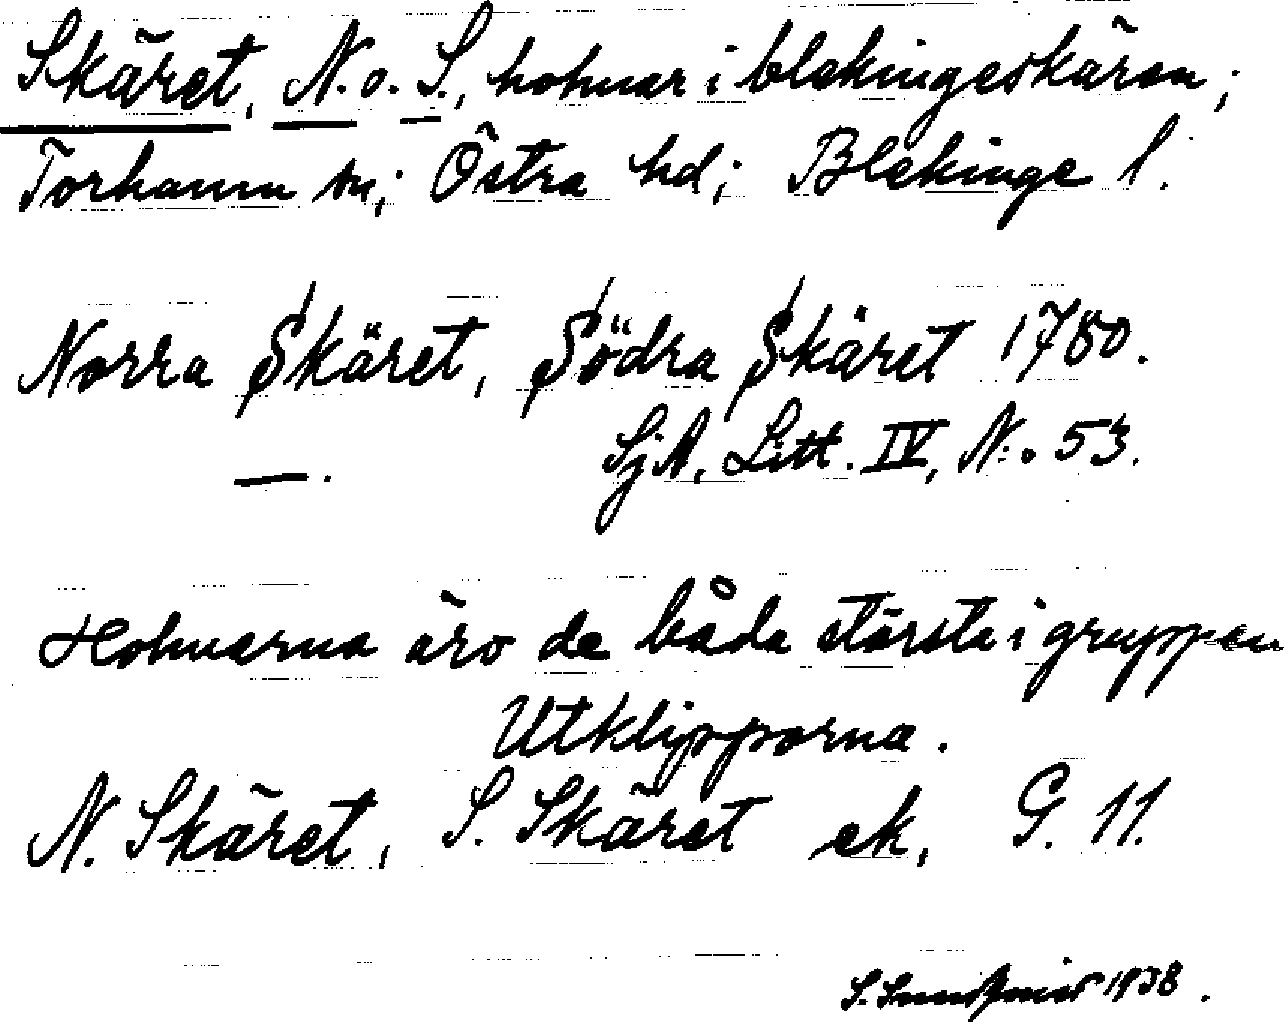 Skäret, N. o. S., holmar i blekingeskären;
Torhamn sn; Östra hd; Blekinge l.
Norra Skäret, Södra Skäret 1780.
—. SjA. Litt. IV, N:o 53.
Holmarna äro de båda största i gruppen
Utklipporna.
N. Skäret, S. Skäret ek, G. 11.
S. 1938.